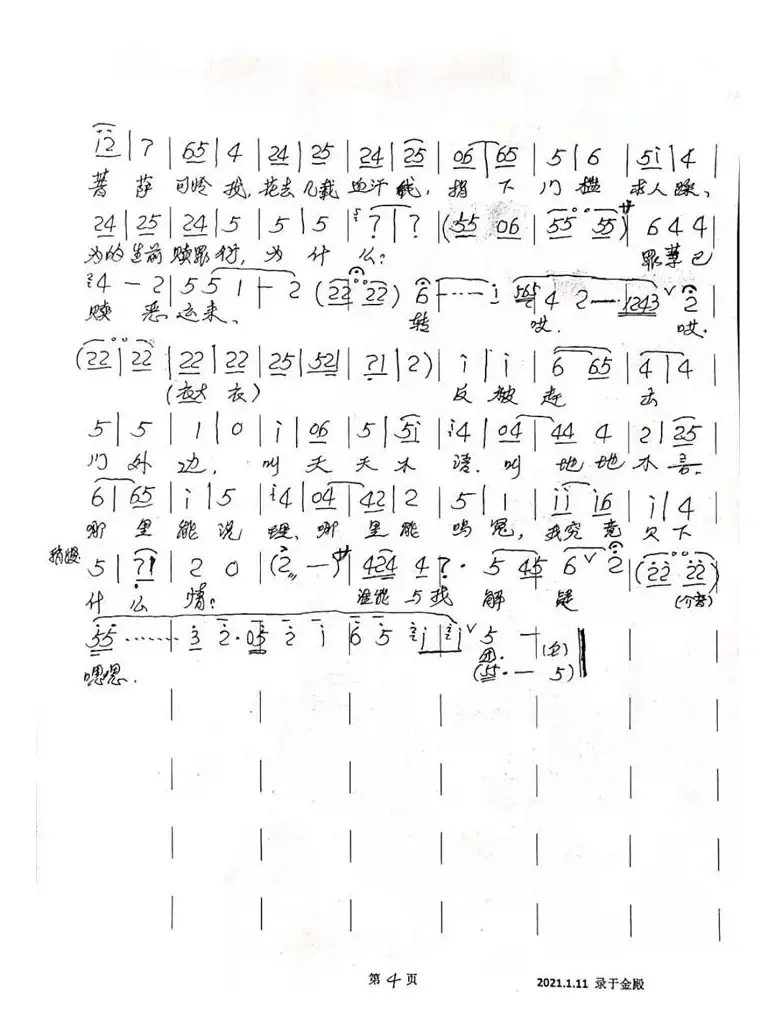 i2 | 7 | 65 | 4 | 24 | 25 | 24 | 25 | 06 | 65 | 5 | 6 | 5i | 4
菩 萨 可怜 我, 花去 几载 血汗 钱, 捐 下 门 槛 求人 踩、
24 | 25 | 24 | 5 | 5 | 5 | 7 | 7 | (55 06 | 55 55) 6 4 4
为的 生前 赎罪 衍, 为 什 么? 罪孽已
4 - 2 | 5 5 1 - 2 (22 22) 6 ---- i 565 4 2 --- 1243 ∨ 2
赎 恶 运来、 转 哎. 哎.
(22 | 22 | 22 | 22 | 25 | 521 | 71 | 2) | i | i | 6 65 | 4 | 4
(衣大 衣) 反 被 赶 去
5 | 5 | 1 | 0 | i | 06 | 5 | 5i | 4 | 04 | 44 4 | 2 | 25
门 外 边, 叫 天 天 不 语. 叫 地 地 不 言.
6 | 65 | i | 5 | 4 | 04 | 42 | 2 | 5 | 1 | ii | i6 | i | 4
哪 里 能 说 理、 哪 里 能 鸣 冤, 我 究 竟 欠 下
稍慢 5 | 71 | 2 0 | (2 —) 424 4 7· 5 45 6 ∨ 2 | (22 22)
什 么 情? 谁能 与我 解 疑
55 ········ 3 2· 05 2 i 6 5 i | i ∨ 5 —
嗯嗯. 团. (55·— 5)
第 4 页
2021.1.11 录于金殿